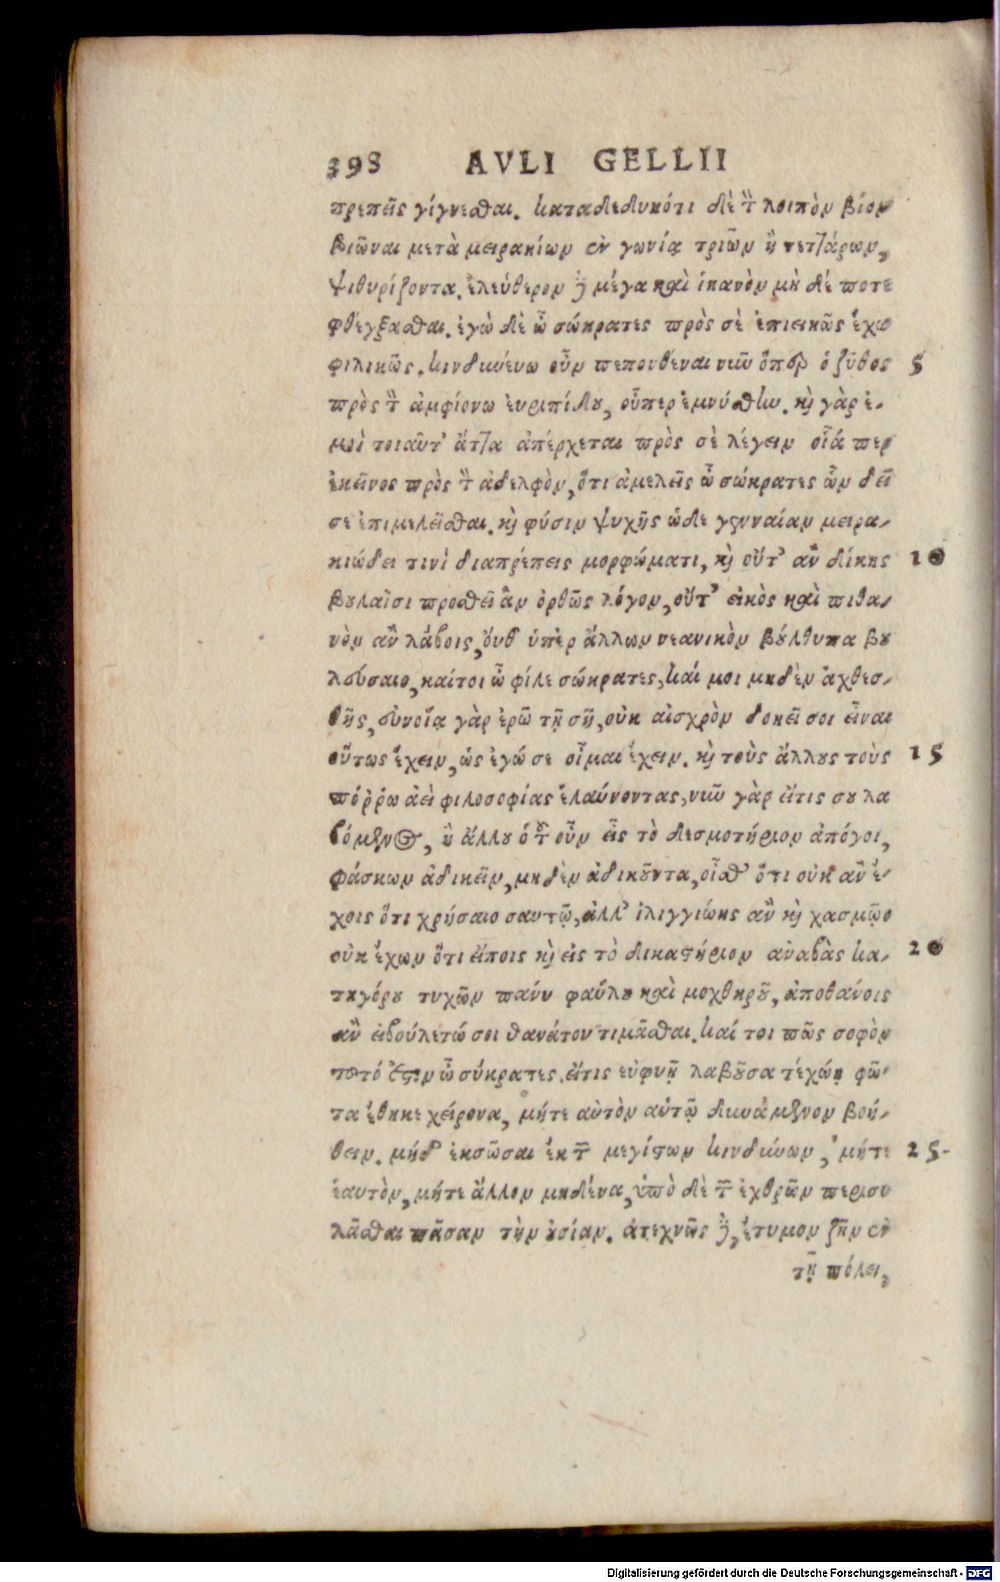 398 AVLI GELLII
πρεπεῖς γίγνεσθαι. καταδεδυκότι δὲ τὸν λοιπὸν βίον
βιῶναι μετὰ μειρακίων ἐν γωνίᾳ τριῶν ἢ τεττάρων,
ψιθυρίζοντα. ἐλεύθερον δὲ μέγα καὶ ἱκανὸν μὴ δέ ποτε
φθέγξασθαι. ἐγὼ δὲ ὦ σώκρατες πρὸς σὲ ἐπιεικῶς ἔχω
φιλικῶς. κινδυνεύω οὖν πεπονθέναι νῦν ὅπερ ὁ ζῦθος 5
πρὸς τὸν ἀμφίονα ἐυριπίδου, οὗπερ ἐμνήσθην. καὶ γὰρ ἐ-
μοὶ τοιαῦτ' ἄττα ἀπέρχεται πρὸς σὲ λέγειν οἷά περ
ἐκεῖνος πρὸς τὸν ἀδελφὸν, ὅτι ἀμελεῖς ὦ σώκρατες ὧν δεῖ
σε ἐπιμελεῖσθαι. καὶ φύσιν ψυχῆς ὧδε γενναίαν μειρα-
κιώδει τινὶ διαπρέπεις μορφώματι, καὶ οὔτ' ἂν δίκης 10
βουλαῖσι προσθεῖ ἂν ὀρθῶς λόγον, οὔτ' εἰκὸς καὶ πιθα-
νὸν ἂν λάβοις, ὄυθ' ὑπὲρ ἄλλων νεανικὸν βούλθυπα βου
λσύσαιο, καίτοι ὦ φίλε σώκρατες, καί μοι μηδὲν ἀχθεσ-
θῇς, συνοίᾳ γὰρ ἐρῶ τῇ σῇ, οὐκ αἰσχρὸν δοκεῖ σοι εἶναι
οὕτως ἔχειν, ὡς ἐγώ σε οἶμαι ἔχειν. καὶ τοὺς ἄλλους τοὺς 15
πόῤῥω ἀεὶ φιλοσοφίας ἐλαύνοντας, νῦν γὰρ ἔιτις σου λα
βόμενος, ἢ ἄλλου ὁτουοῦν εἰς τὸ δεσμοτήριον ἀπόγοι,
φάσκων ἀδικεῖν, μηδὲν ἀδικοῦντα, οἶσθ' ὅτι οὐκ ἂν ἔ-
χοις ὅτι χρήσαιο σαυτῷ, ἀλλ' ἰλιγγιώης ἂν καὶ χασμῷο
οὐκ ἔχων ὅτι εἴποις καὶ εἰς τὸ δικαστήριον ἀναβὰς κα- 20
τηγόρου τυχῶν πανύ φαύλου καὶ μοχθηροῦ, ἀποθανόις
ἂν εἰβούλετώ σοι θανάτον τιμᾶσθαι. καί τοι πῶς σοφὸν
τοτό ἐστιν ὦ σώκρατες. ἔιτις εὐφυῆ λαβοῦσα τέχνη φῶ-
τα ἔθηκε χείρονα, μήτε αὐτὸν αὑτῷ δυνάμενον βοή-
θειν. μήδ' ἐκσῶσαι ἐκ τῶν μεγίστων κινδύνων, μήτε 25
ἑαυτὸν, μήτε ἄλλον μηδένα, ὑπὸ δὲ τῶν ἐχθρῶν περισυ
λᾶσθαι πᾶσαν τὴν οὐσίαν. ἀτεχνῶς δὲ, ἔτυμον ζῆν ἐν
τῇ πόλει,
Digitalisierung gefördert durch die Deutsche Forschungsgemeinschaft - DFG